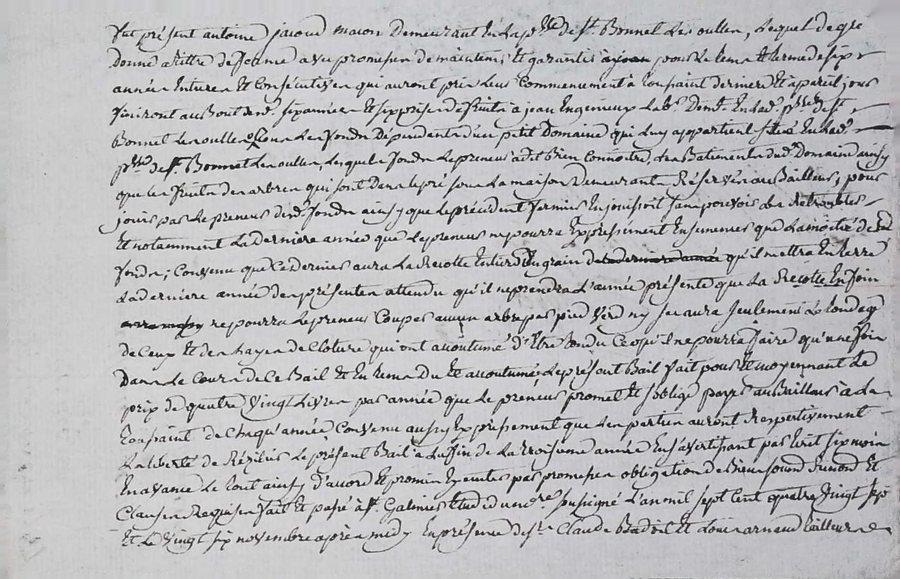 fut présent antoine jacoud macon demeurant En la psse de st. Bonnet Les oulles, Lequel de gre
donne a tittre de ferme avec promesse de maintenir Et garantir pour Le tems et terme de six
année Entieres Et Consécutives qui auront pris Leurs Commencement a toussaint derniere Et a pareil jour
finiront au Bout desd. six années Et six prises de fruits a jean Lab. demt. En lad. psse de st.
Bonnet Les oulles, Les fonds dépendents d'un petit Domaine qui Luy appartient situé En lad.
psse de st. Bonnet Les oulles, Lesquels fonds Le preneur a dit Bien Connoitre, Les Batiments dud. Domaine ainsy
que Les fruits des arbres qui sont dans le pré sous La maison demeurants Réservés au Bailleur, pour
jouir par Le preneur desd. fonds ainsy que Le précédent fermier En jouissoit sans pouvoir
Et notamment La derniere année que Le preneur ne pourra Expressément Ensemencer que La moitié desd.
fonds; Convenu que Ce dernier aura La Recolte Entiere En grain qu'il mettra En terre
La derniere année des présentes attendu qu'il ne prendra L'année présente que La Recolte En foin
ne pourra Le preneur Couper aucun arbre par pied Verd ny sec aura seulement La tondage
de Ceux Et des hayes de Cloture qui ont accoutumé d'Etre tondu Ce qu'il ne pourra faire qu'une fois
Dans Le Cours de Ce Bail Et En tems du Et accoutumé, Le présent Bail fait pour Et moyennant Le
prix de quatre Vingt Livres par année que Le preneur promet Et s'oblige payer au Bailleur à La
toussaint de Chaqu'année Convenu aussy Expressément que Les parties auront Respectivement
La liberté de Résilier Le présent Bail a La fin de La troisieme année En s'avertissant par Ecrit six mois
En avance Le tout ainsy d'accord Et promis Executer par promesses obligation de Biens soumd. Renond. Et
Clauses Requises fait Et passé a st. Galmier Etude du nore. soussigné L'an mil sept Cent quatre Vingt
Et Le Vingt six novembre après midy En présence de sr. Claude Et Louis arnaud tailleur